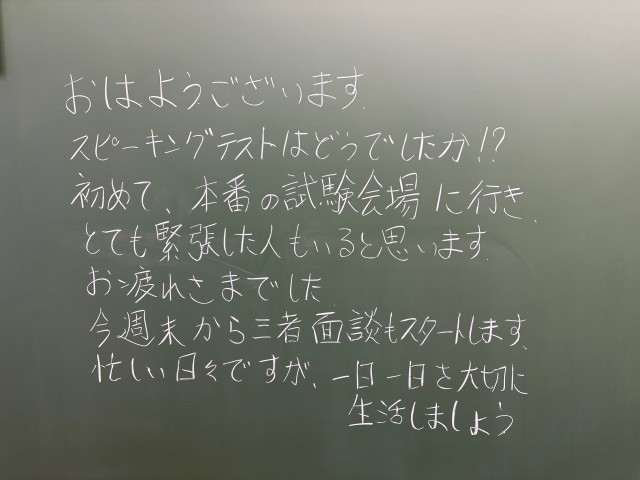 おはようございます.
スピーキングテストはどうでしたか!?
初めて、本番の試験会場に行き、
とても緊張した人もいると思います.
お疲れさまでした
今週末から三者面談もスタートします、
忙しい日々ですが、一日一日を大切に
生活しましょう